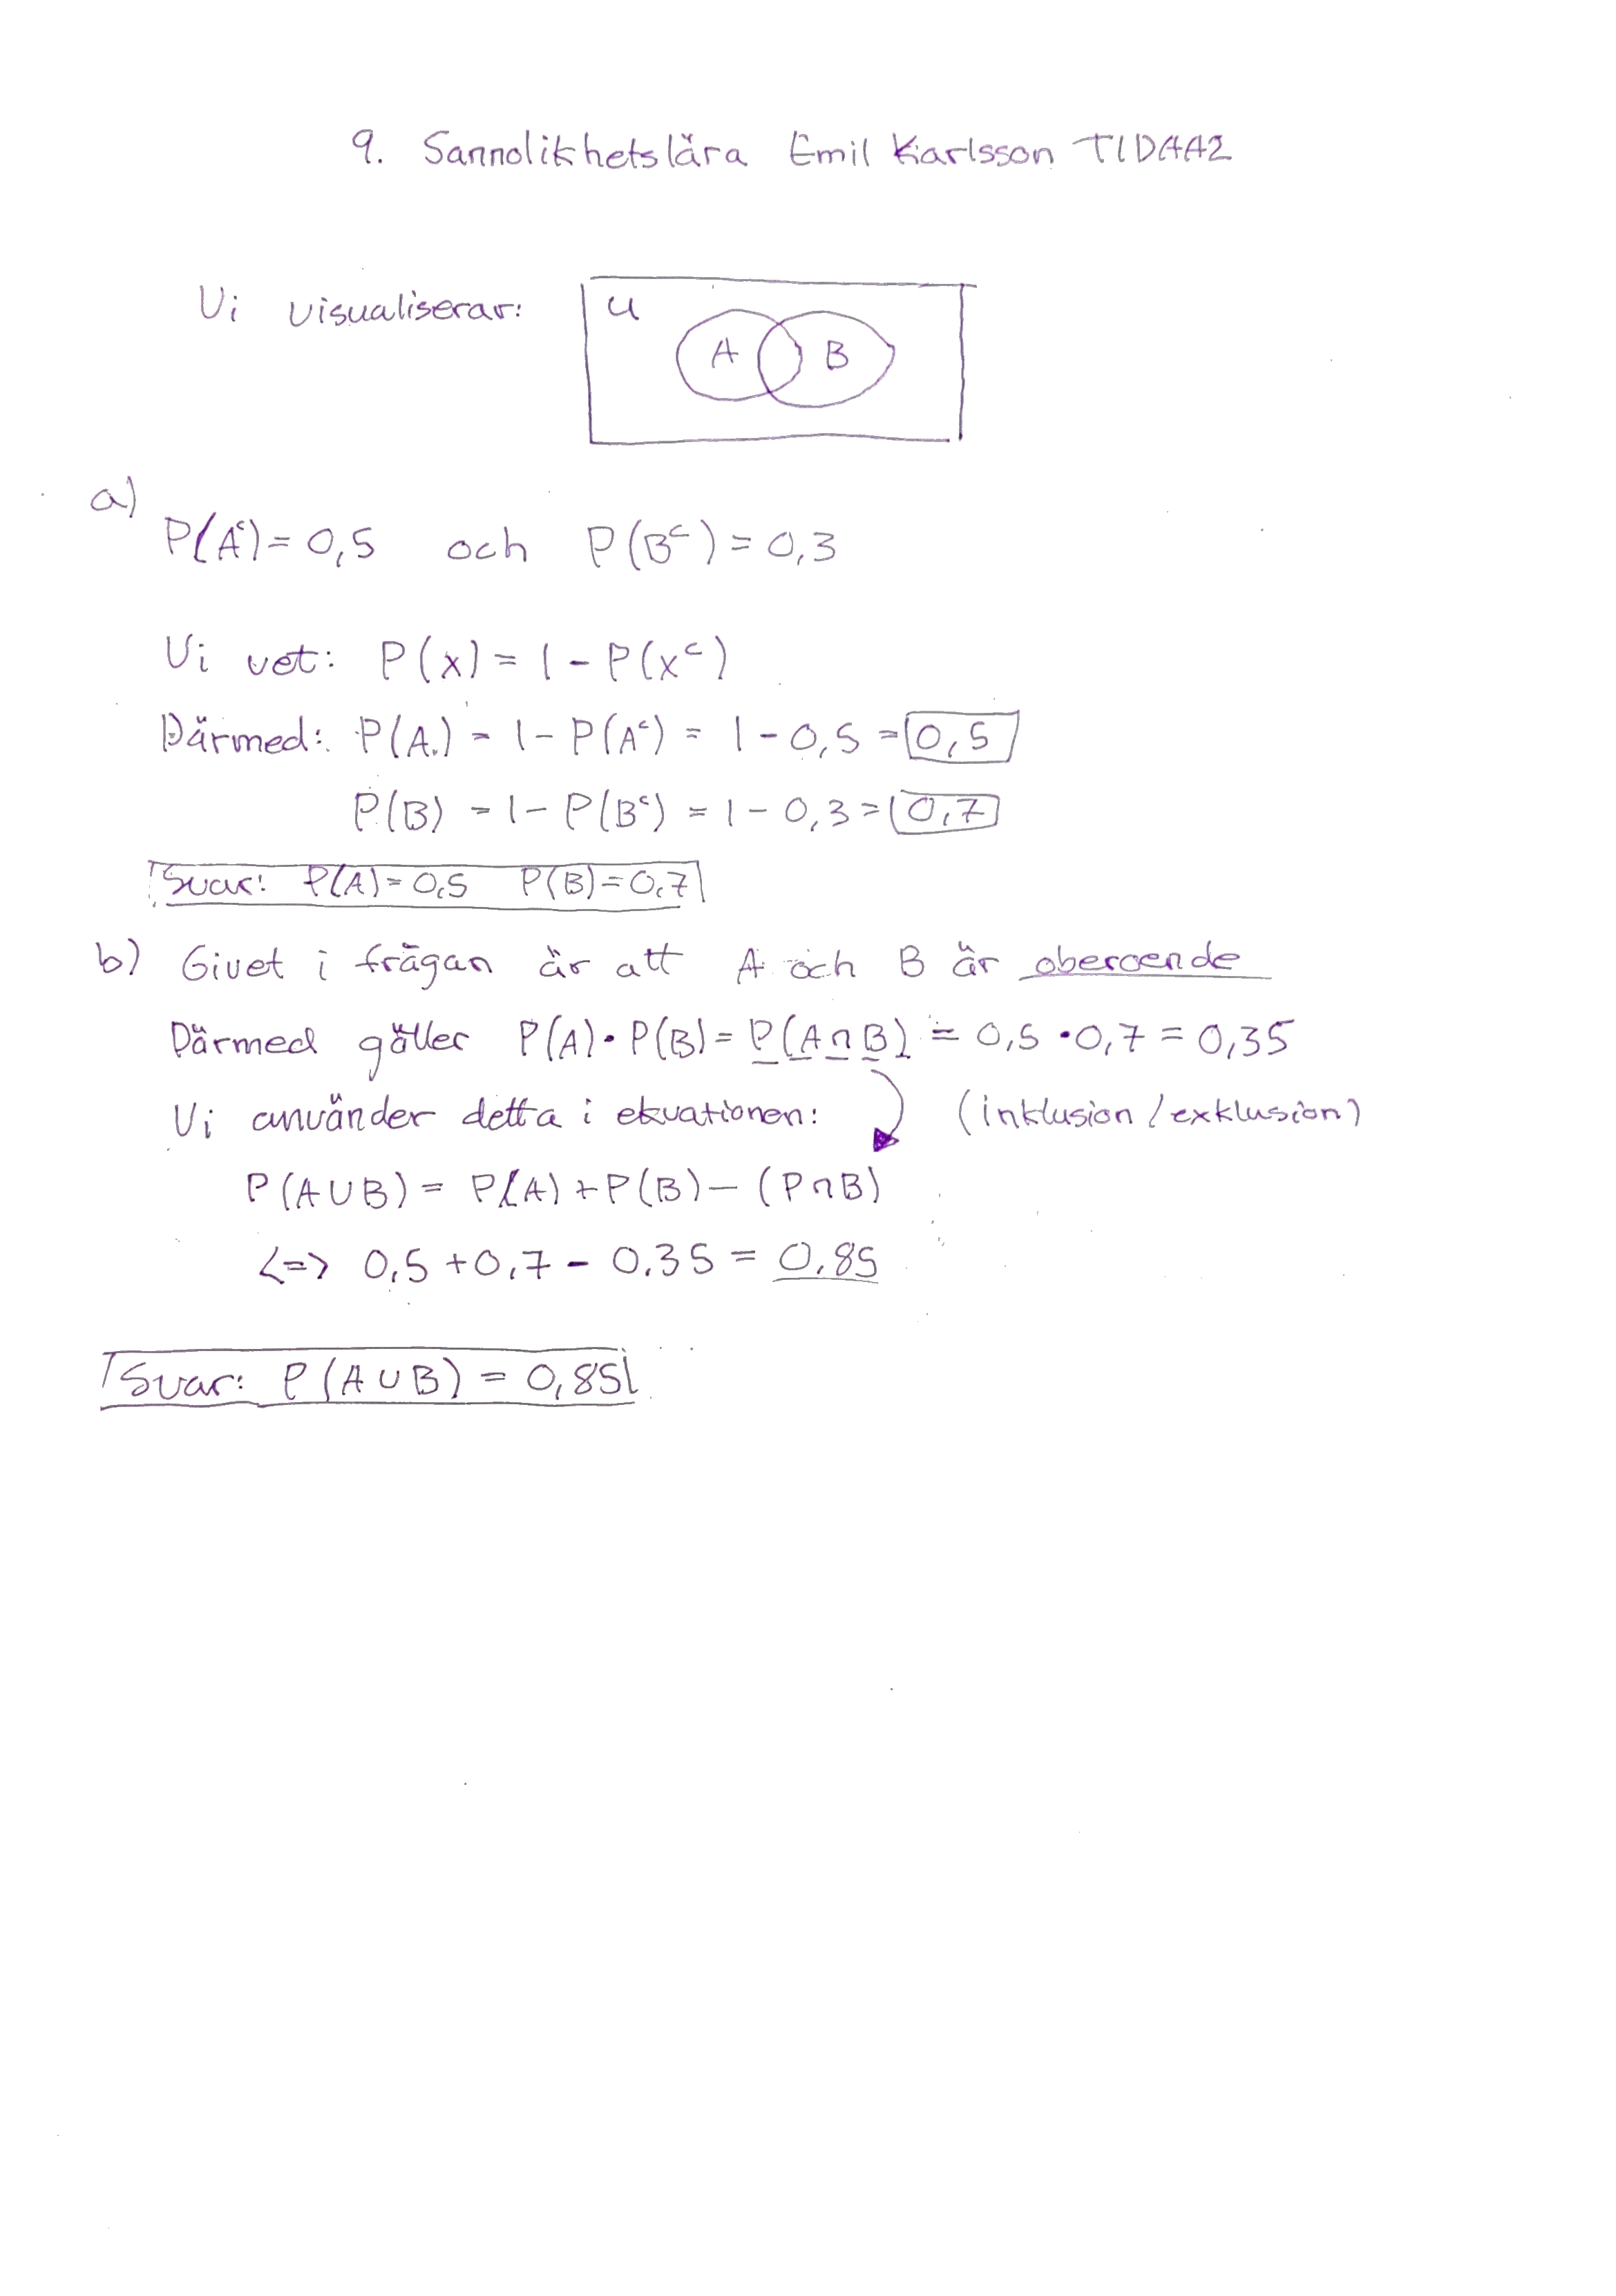 9. Sannolikhetslära Emil Karlsson TIDAA2
Vi visualiserar:
U
A B
a)
P(Aᶜ)= 0,5 och P(Bᶜ) = 0,3
Vi vet: P(x) = 1 - P(xᶜ)
Därmed: P(A) = 1 - P(Aᶜ) = 1 - 0,5 = 0,5
P(B) = 1 - P(Bᶜ) = 1 - 0,3 = 0,7
Svar: P(A) = 0,5 P(B) = 0,7
b) Givet i frågan är att A och B är oberoende
Därmed gäller P(A) · P(B) = P(A∩B) = 0,5 · 0,7 = 0,35
Vi använder detta i ekvationen: (inklusion / exklusion)
P(A∪B) = P(A) + P(B) - (P∩B)
<=> 0,5 + 0,7 - 0.35 = 0,85
Svar: P(A∪B) = 0,85